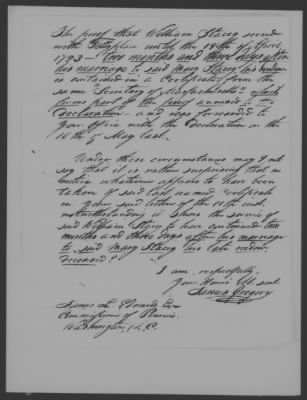 The proof that William Stacey served
with Pettyplace until the 19th of April
1783 - two months and three days after
his marriage to said Mary Stacey his widow
is contained in a Certificate from the
same "Secretary of Massachusetts" which
forms part of the proof annexed to the
Declaration and was forwarded to
your office with the Declaration on the
16th of May last.
Under these circumstances may I not
say that it is rather surprising that no
notice whatever appears to have been
taken of said last named Certificate
in your said letter of the 11th inst.
notwithstanding it shows the service of
said William Stacey to have continued two
months and three days after his marriage
to said Mary Stacey his late widow
deceased?
I am respectfully,
Your Honor's Obt. servt.
James Gregory
James L. Edwards Esqr
Commissioner of Pensions
Washington, D.C.